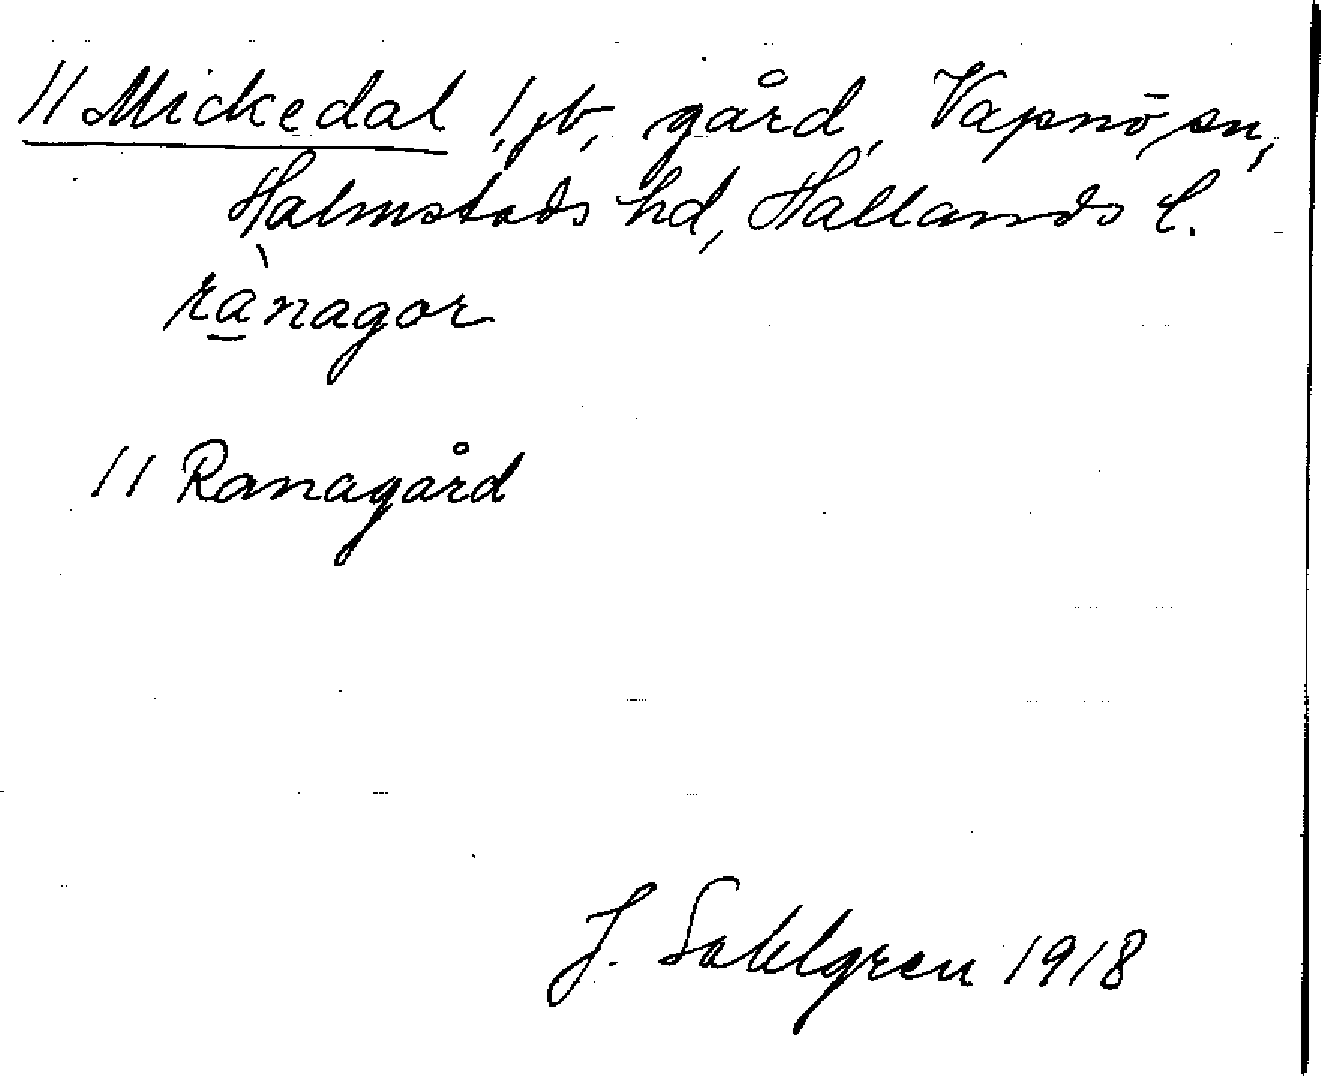 // Mickedal ! jb, gård, Vapnö sn,
Halmstads hd, Hallands l.
rànagor
// Ranagård
J. Sahlgren 1918